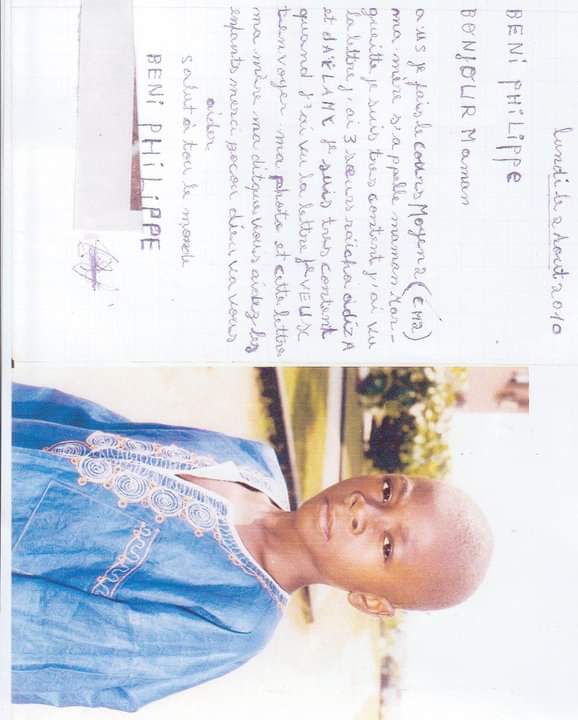 lundi le 2 Aout 2010
BENI PHILIPPE
BONJOUR Maman
je fais le cours Moyen 2 (CM2)
ma mère s'appelle maman Mar-
gueitte je suis tres content j'ai vu
la lettre j'ai 3 sœurs
et je suis tres content
quand j'ai vu la lettre je VEUX
t'envoyer ma photo et cette lettre
ma mère ma dit que vous aidez les
enfants merci bocou dieu va vous
aider
salut a tou le monde
BENI PHILIPPE